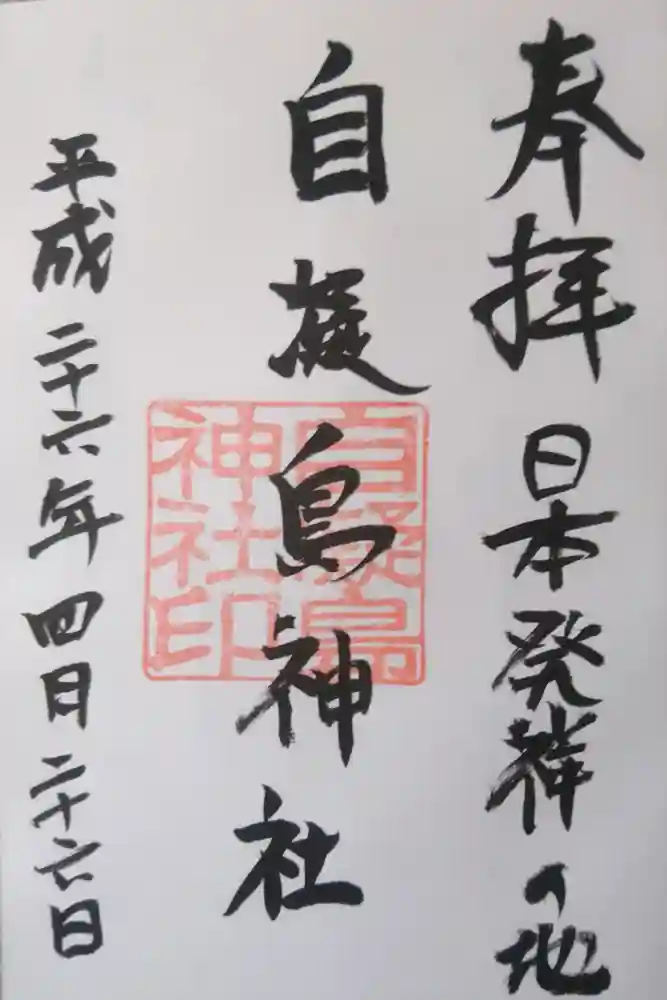 奉拝 日本発祥の地
自凝島神社
自凝島
神社印
平成二十六年四月二十六日